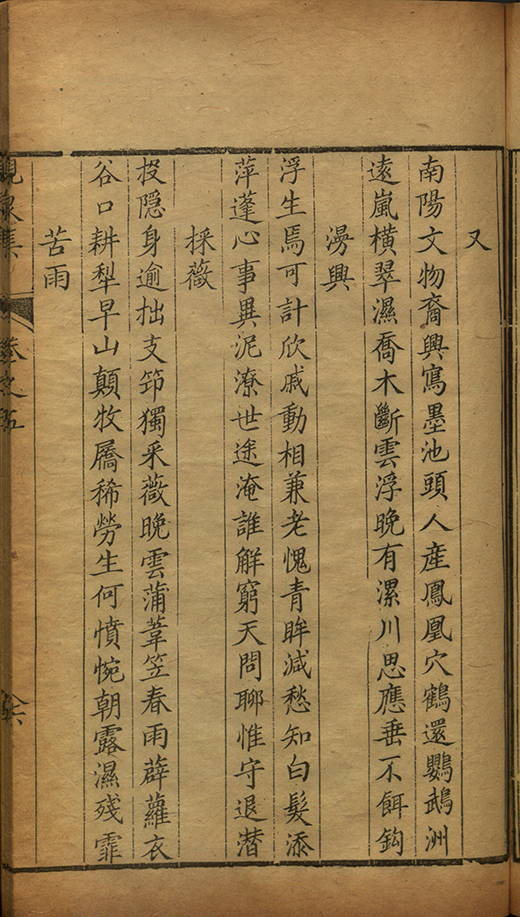 又
南陽文物裔興寫墨池頭人産鳳凰穴鶴還鸚鵡洲
遠嵐橫翠濕喬木斷雲浮晚有漯川思應垂不餌鈎
漫興
浮生焉可計欣戚動相兼老愧青眸減愁知白髮添
萍蓬心事異泥潦世途淹誰解窮天問聊惟守退潛
採薇
投隠身逾拙支笻獨采薇晚雲蒲葦笠春雨薜蘿衣
谷口耕犁早山顛牧屩稀勞生何憤惋朝露濕殘霏
苦雨
卷之五
六